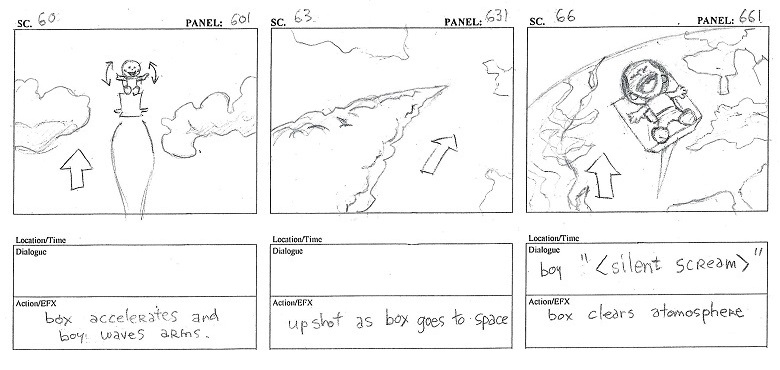 SC. 60. PANEL: 601
Location/Time
Dialogue
Action/EFX
box accelerates and
boy waves arms.
SC. 63. PANEL: 631
Location/Time
Dialogue
Action/EFX
upshot as box goes to space
SC. 66 PANEL: 661
Location/Time
Dialogue
boy "<silent scream>"
Action/EFX
box clears atomosphere